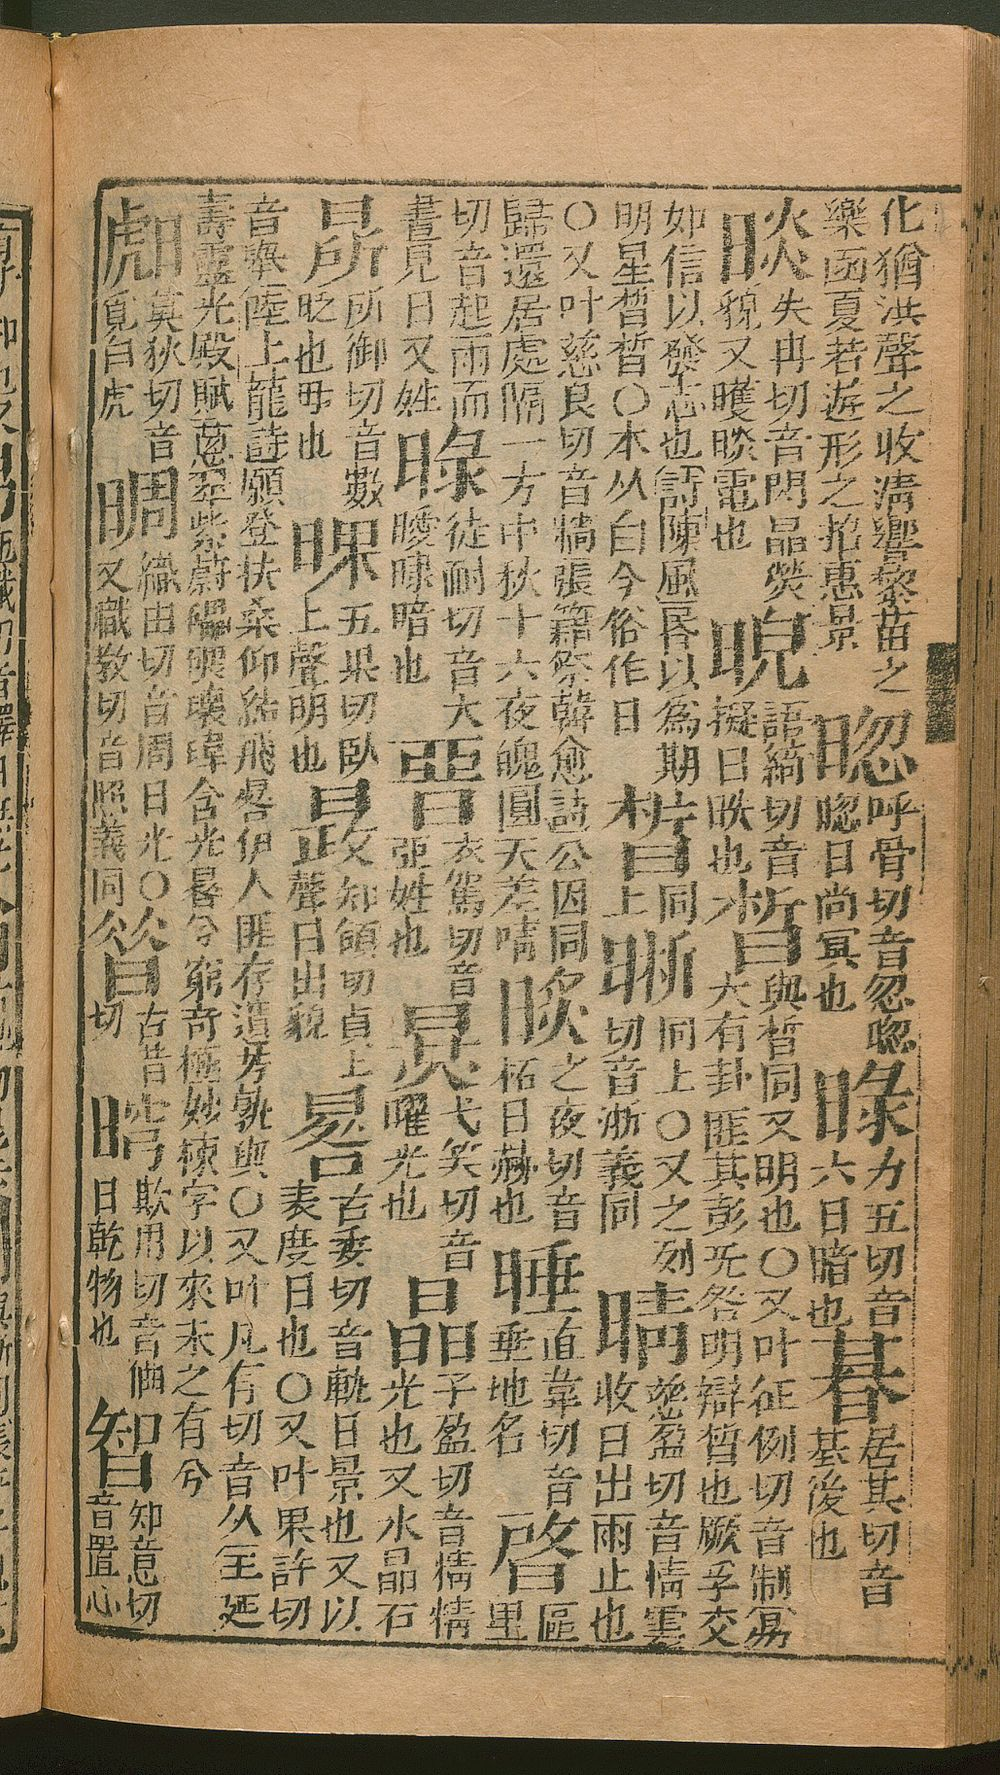 化猶洪聲之收清響藜苗之樂函夏若遊形之招惠景 呼骨切音忽唿唿日尚冥也 力五切音六日暗也 朞居其切音基後也
晱失冉切音閃晶熒貌又曤晱電也 晲語綺切音擬日昳也 晳與晢同又明也○又叶征例切音制易大有卦匪其彭旡咎明辯晳也厥孚交
如信以發志也詩陳風昏以為期明星晢晢○本从白今俗作日 同上 晰同上○又之列切音浙義同 晴慈盈切音情雲收日出雨止也
○又叶慈良切音牆張籍祭韓愈詩公因同歸還居處隔一方中秋十六夜魄圓天差晴 之夜切音柘日赫也 直葦切音垂地名 晵區里
切音起雨而晝見日又姓 徒耐切音大曖暗也 衣駕切音亞姓也 弋笑切音曜光也 晶子盈切音精精光也又水晶石
所御切音數眨也毋也 五果切臥上聲明也 知領切貞上聲日出貌 晷古委切音軌日景也又以表度日也○又叶果許切
音舉陸士龍詩願登扶桑仰結飛晷伊人匪存遺芳孰與○又叶几有切音久王延壽靈光殿賦葱翠紫蔚礧碨瓌瑋含光晷兮窮奇極妙棟宇以來未之有兮
莫狄切音覓白虎 晭織由切音周日光○又職救切音照義同 古昔切 欺用切音日乾物也 智知意切音置心